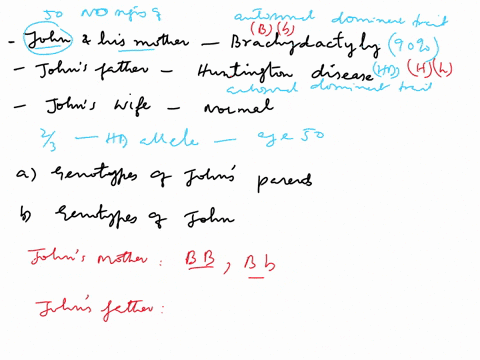 50 no signs of autosomal dominant trait
(B) (b)
- John & his mother - Brachydactyly (90%)
- John's father - Huntington disease (HD) (H) (h)
autosomal dominant trait
- John's wife - normal
2/3 - HD allele - age 50
a) Genotypes of John's parents
b) Genotypes of John
John's mother: BB, Bb
John's father: